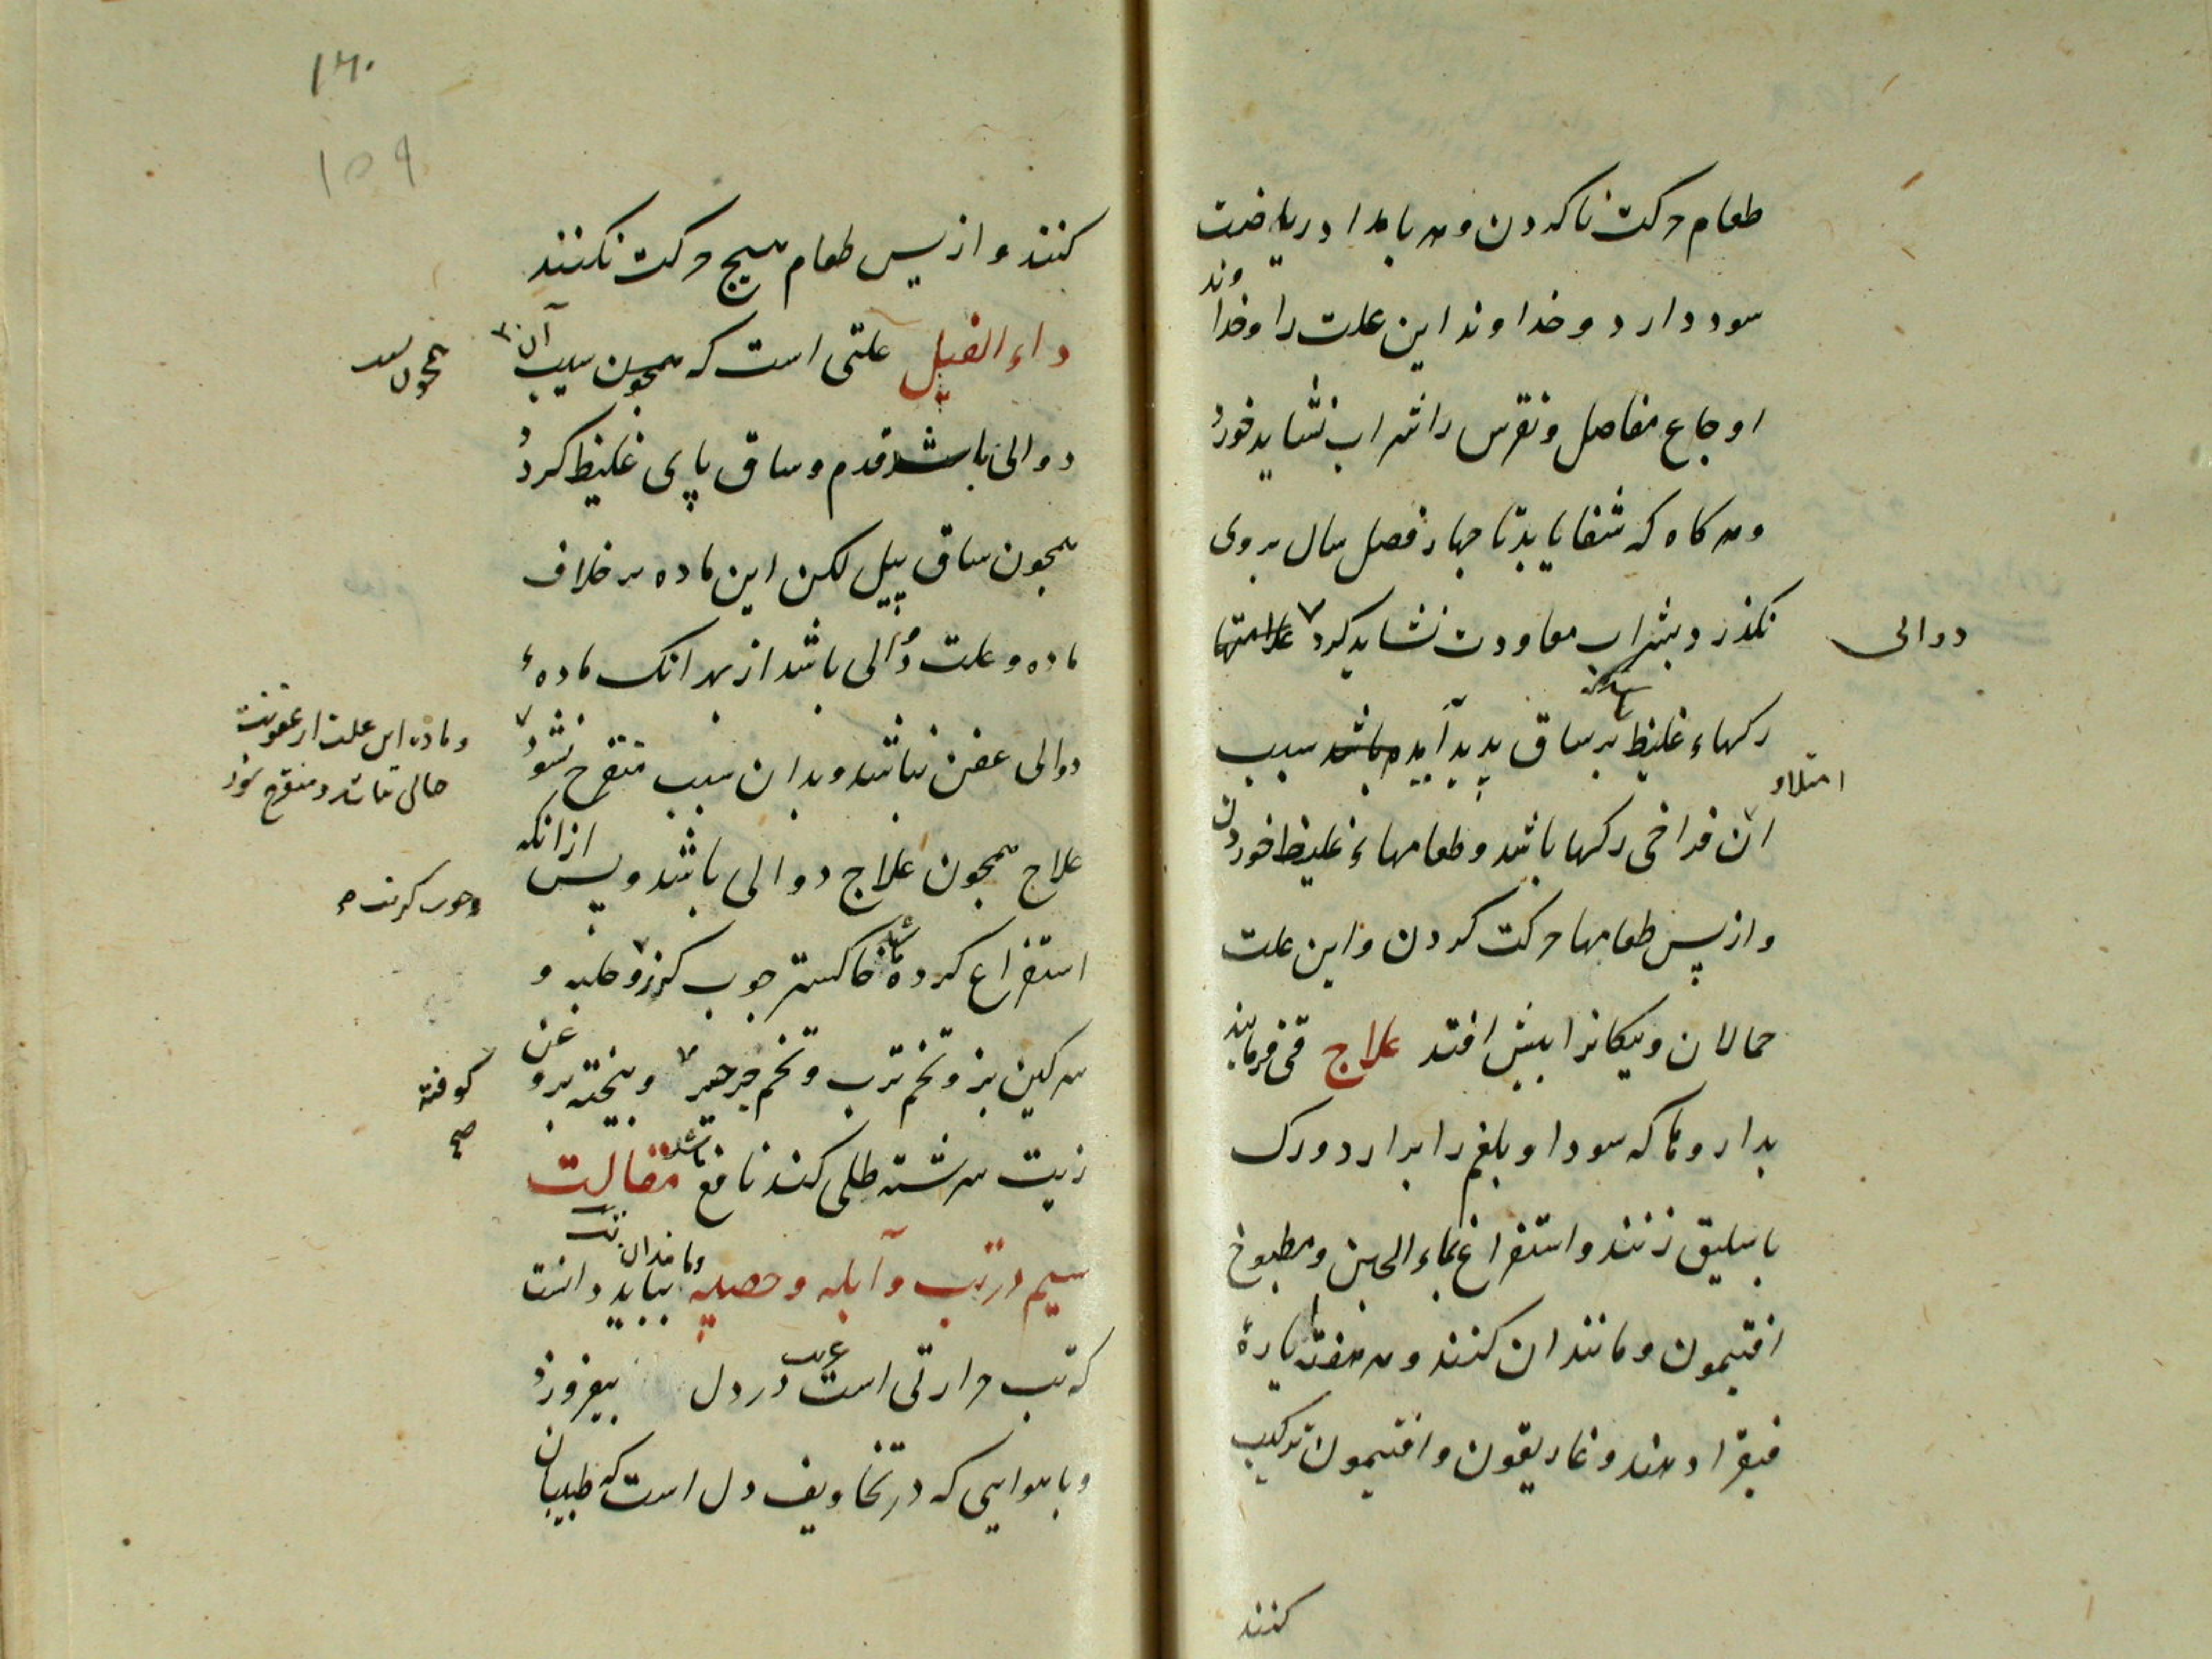 طعام حرکت ناکردن و هر بامداد ریاضت
سود دارد و خداوند این علت را و خداوند
اوجاع مفاصل و نقرس را شراب نشاید خورد
و هر کاه که شفا یابد تا جهار فصل سال بر وی
نکذرد بشراب معاودت نشاید کرد علامتها
دوالی
رکهاء غلیظ بر ساق بدید آید باشد سبب
امتلاء
ان فراخی رکها باشد و طعامهاء غلیظ خوردن
و از پس طعامها حرکت کردن و این علت
حمالان و بیکانرا بیش افتد علاج قی فرمایند
بداروها که سودا و بلغم را برارد و رک
باسلیق زنند و استفراغ بماء الجبن و مطبوخ
افتیمون و مانند ان کنند و هر هفته یارهٔ
فیقرا دهند و غاریقون و افتیمون ترکیب
کنند
۱۶۰
۱۵۹
کنند و از پس طعام هیج حرکت نکنند
داء الفیل علتی است که همجون سبب آن
دوالی باشد قدم و ساق پای غلیظ کردد
همجون ساق پیل لکن این ماده بر خلاف
ماده و علت دوالی باشد از بهر انک مادهٔ
دوالی عفن نباشد و بدان سبب متقرح نشود
و ماده این علت از عفونت
خالی نباشد و متقرح شود
علاج همجون علاج دوالی باشد و پس از انکه
استفراغ کرده باشند خاکستر جوب کرز و حلبه و
سرکین بز و تخم ترب و تخم جرجیر و بیخته بروغن
کوفته
صح
زیت سرشته طلی کنند نافع باشد مقالت
سیم در تب و آبله و حصبه و مانند ان بباید دانست
که تب حرارتی است غریب در دل بیفروزد
و با هوایی که در تجاویف دل است که طبیبان